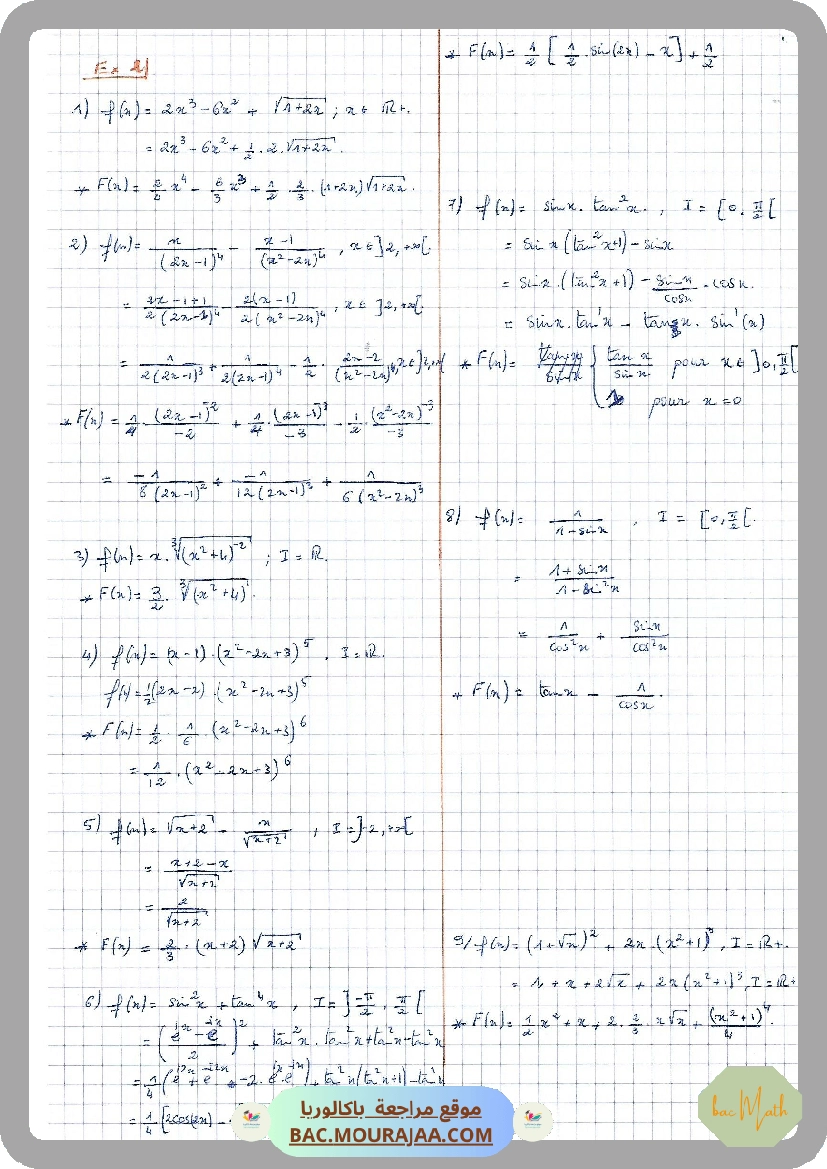 Ex 2/
1) f(x) = 2x³ - 6x² + √(1+2x) ; x ∈ ℝ+.
= 2x³ - 6x² + 1/2 · 2 · √(1+2x).
* F(x) = 2/4 x⁴ - 6/3 x³ + 1/2 · 2/3 · (1+2x)√(1+2x).
2) f(x) = x/(2x-1)⁴ - (x-1)/(x²-2x)⁴ , x ∈ ]2,+∞[.
= (2x-1+1)/2(2x-1)⁴ - 2(x-1)/2(x²-2x)⁴ , x ∈ ]2,+∞[
= 1/2(2x-1)³ + 1/2(2x-1)⁴ - 1/2 · (2x-2)/(x²-2x)⁴, x ∈ ]2,+∞[
* F(x) = 1/4 · (2x-1)⁻²/-2 + 1/4 · (2x-1)⁻³/-3 - 1/2 · (x²-2x)⁻³/-3
= -1/8(2x-1)² + -1/12(2x-1)³ + 1/6(x²-2x)³
3) f(x) = x · ³√((x²+4)⁻²) ; I = ℝ.
* F(x) = 3/2 · ³√(x²+4).
4) f(x) = (x-1) · (x²-2x+3)⁵ . I = ℝ.
f(x) = 1/2(2x-2) · (x²-2x+3)⁵
* F(x) = 1/2 · 1/6 · (x²-2x+3)⁶
= 1/12 · (x²-2x+3)⁶
5) f(x) = √(x+2) - x/√(x+2) , I = ]-2,+∞[
= (x+2-x)/√(x+2)
= 2/√(x+2)
* F(x) = 2/3 · (x+2)√(x+2)
6) f(x) = sin²x + tan⁴x , I = ]-π/2 , π/2[
= ((e^ix - e^-ix)/2)² + tan²x · tan²x + tan²x - tan²x
= 1/4 (e^i2x + e^-i2x - 2 · e^ix · e^-ix) + tan²x(tan²x+1) - tan²x
= 1/4 [2cos(2x) -
* F(x) = 1/2 [1/2 · sin(2x) - x] + 1/2
7) f(x) = sinx · tan²x. , I = [0, π/2[
= sinx(tan²x+1) - sinx
= sinx · (tan²x+1) - sinx/cosx · cosx.
= sinx · tan'x - tanx · sin'(x)
* F(x) = { tanx/sinx pour x ∈ ]0, π/2[
1 pour x = 0
8) f(x) = 1/(1-sinx) , I = [0, π/2[.
= (1+sinx)/(1-sin²x)
= 1/cos²x + sinx/cos²x
* F(x) = tanx - 1/cosx.
9) f(x) = (1+√x)² + 2x · (x²+1)³ , I = ℝ+.
= 1 + x + 2√x + 2x(x²+1)³, I = ℝ+
* F(x) = 1/2 x² + x + 2 · 2/3 · x√x + (x²+1)⁴/4.
موقع مراجعة باكالوريا
BAC.MOURAJAA.COM
bac Math